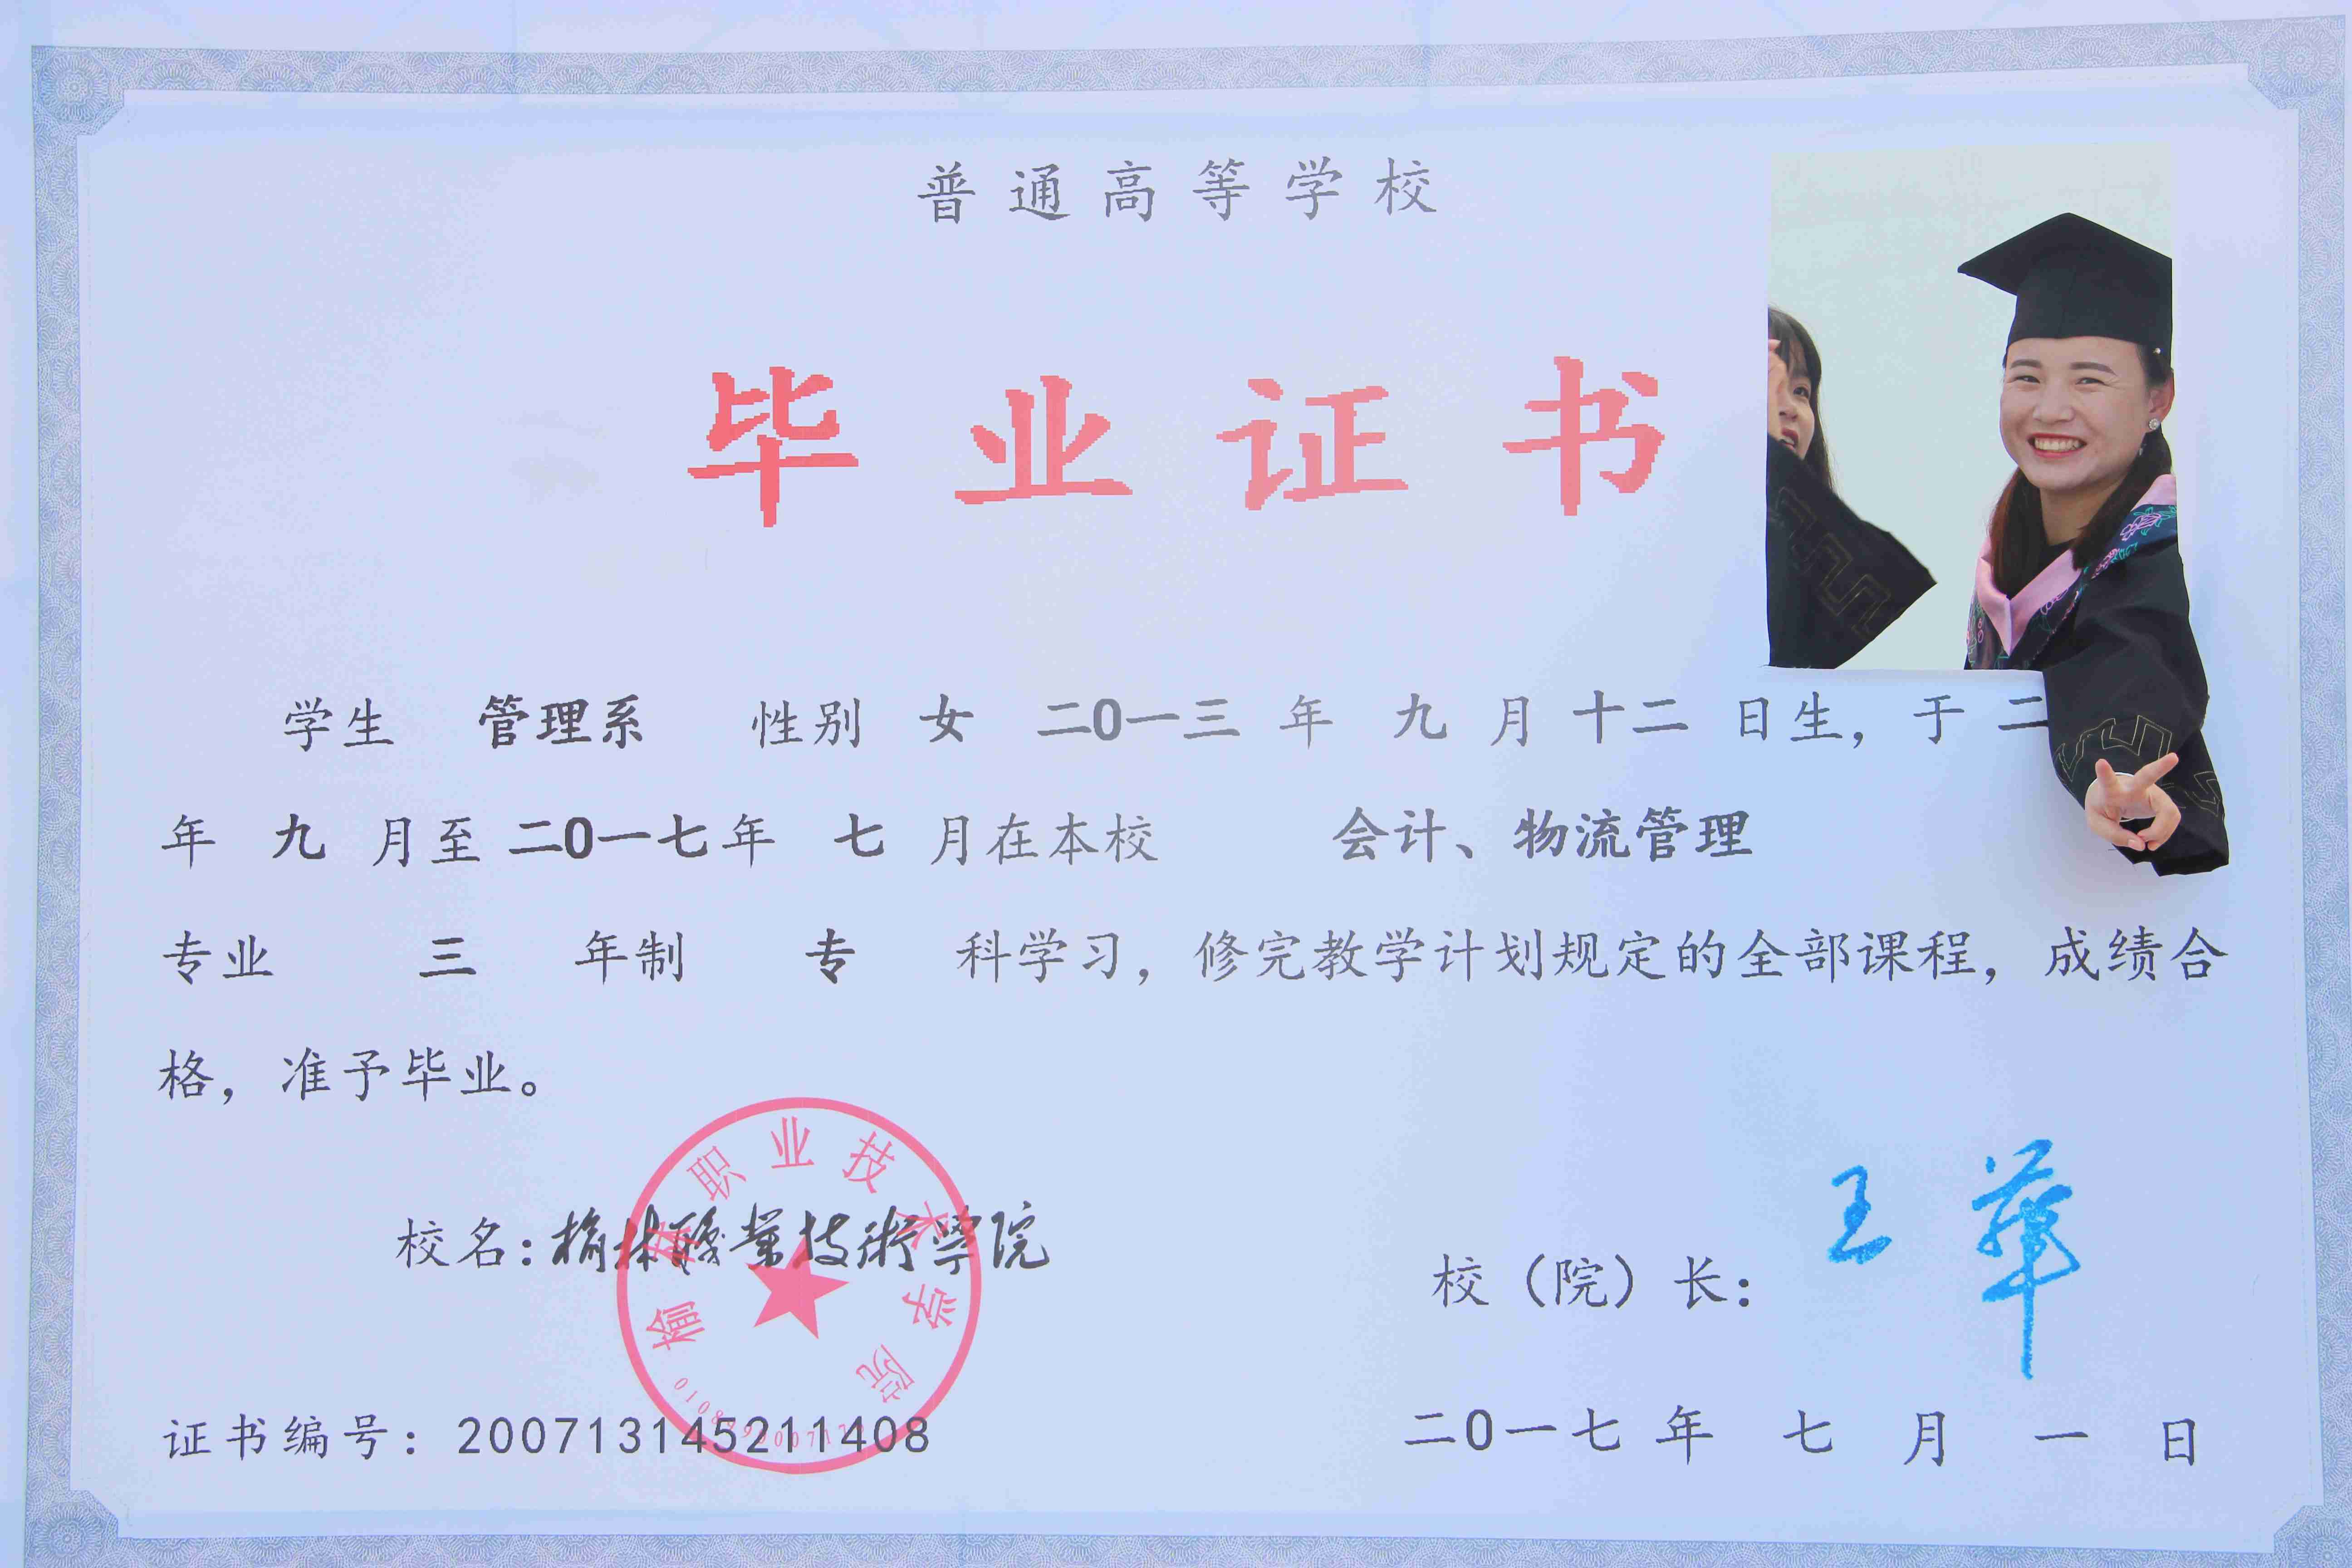 普通高等学校
毕业证书
学生 管理系 性别 女 二0一三 年 九 月 十二 日生，于 二
年 九 月至 二0一七年 七 月在本校 会计、物流管理
专业 三 年制 专 科学习，修完教学计划规定的全部课程，成绩合
格，准予毕业。
榆林职业技术学院
校名：榆林職業技術學院
校（院）长：
王華
证书编号：200713145211408
二0一七 年 七 月 一 日